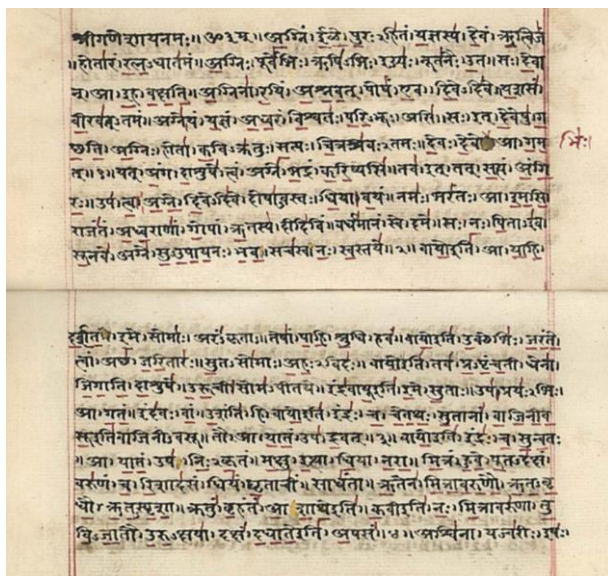 श्रीगणेशायनमः॥ॐ३म्॥ अग्निं। ईळे। पुरःऽहितं। यज्ञस्य। देवं। ऋत्विजं
॥होतारं। रत्नऽधातमं॥ अग्निः। पूर्वेभिः। ऋषिऽभिः। ईड्यः। नूतनैः। उत॥ सः। देवा
न्। आ। इह। वक्षति॥ अग्निना। रयिं। अश्नवत्। पोषं। एव। दिवेऽदिवे॥ यशसं।
वीरवत्ऽतमं॥ अग्ने। यं। यज्ञं। अध्वरं। विश्वतः। परिऽभूः। असि॥ सः। इत्। देवेषु। ग
च्छति॥ अग्निः। होता। कविऽक्रतुः। सत्यः। चित्रश्रवःऽतमः॥ देवः। देवे। आ। गम
भिः
त्॥१॥ यत्। अंग। दाशुषे। त्वं। अग्ने। भद्रं। करिष्यसि॥ तव। इत्। तत्। सत्यं। अंगि
रः॥ उप। त्वा। अग्ने। दिवेऽदिवे। दोषाऽवस्तः। धिया। वयं॥ नमः। भरंतः। आ। इमसि॥
राजंतं। अध्वराणां। गोपां। ऋतस्य। दीदिविं॥ वर्धमानं। स्वे। दमे॥ सः। नः। पिताऽइव।
सूनवे। अग्ने। सुऽउपायनः। भव॥ सचस्व। नः। स्वस्तये॥२॥ वायोइति। आ। याहि।
दर्शत। इमे। सोमाः। अरंऽकृताः॥ तेषां। पाहि। श्रुधि। हवं॥ वायोइति। उक्थेभिः। जरंते।
त्वां। अच्छ। जरितारः॥ सुतऽसोमाः। अहःऽविदः॥ वायोइति। तव। प्रऽपृंचती। धेना।
जिगाति। दाशुषे॥ उरूची। सोमऽपीतये॥ इंद्रवायूइति। इमे। सुताः। उप। प्रयःऽभिः।
आ। गतं॥ इंदवः। वां। उशंति। हि॥ वायोइति। इंद्रः। च। चेतथः। सुतानां। वाजिनीव
सूइतिवाजिनीवसू॥ तौ। आ। यातं। उप। द्रवत्॥३॥ वायोइति। इंद्रः। च। सुन्वतः
॥आ। यातं। उप। निःऽकृतं॥ मक्षु। इत्था। धिया। नरा॥ मित्रं। हुवे। पूतऽदक्षं।
वरुणं। च। रिशादसं॥ धियं। घृताचीं। साधंता॥ ऋतेन। मित्रावरुणौ। ऋतऽवृ
धौ। ऋतऽस्पृशा॥ क्रतुं। बृहंतं। आशाथेइति॥ कवीइति। नः। मित्रावरुणा। तु
विऽजातौ। उरुऽक्षया॥ दक्षं। दधातेइति। अपसं॥४॥ अश्विना। यज्वरीः। इषः।